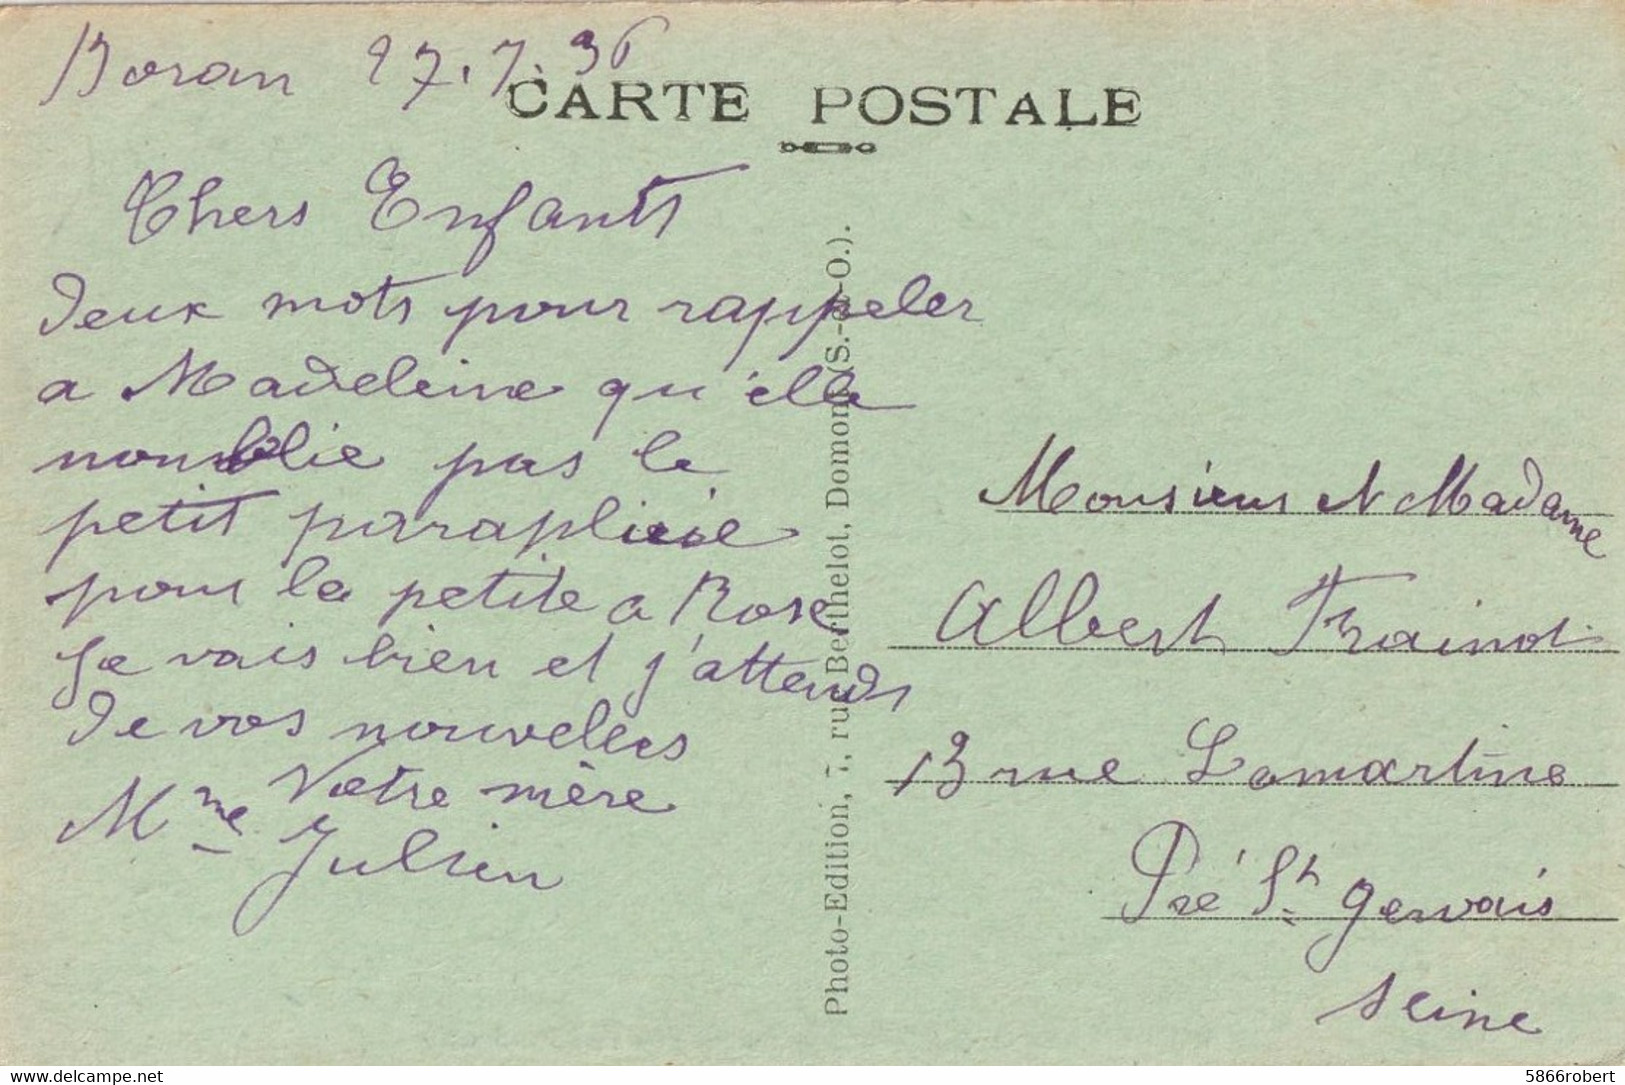 Boran 27.7.36
CARTE POSTALE
Chers Enfants
deux mots pour rappeler
a Madeleine qu'elle
noublie pas le
petit parapluie
pour la petite a Rose
Je vais bien et j'attends
de vos nouvelles
Votre mère
Mme Julien
Photo-Edition, 7, rue Berthelot, Domont (S.-&-O.).
Monsieur et Madame
Albert Frainot
13 rue Lamartine
Pré St gervais
Seine
delcampe.net
5866robert